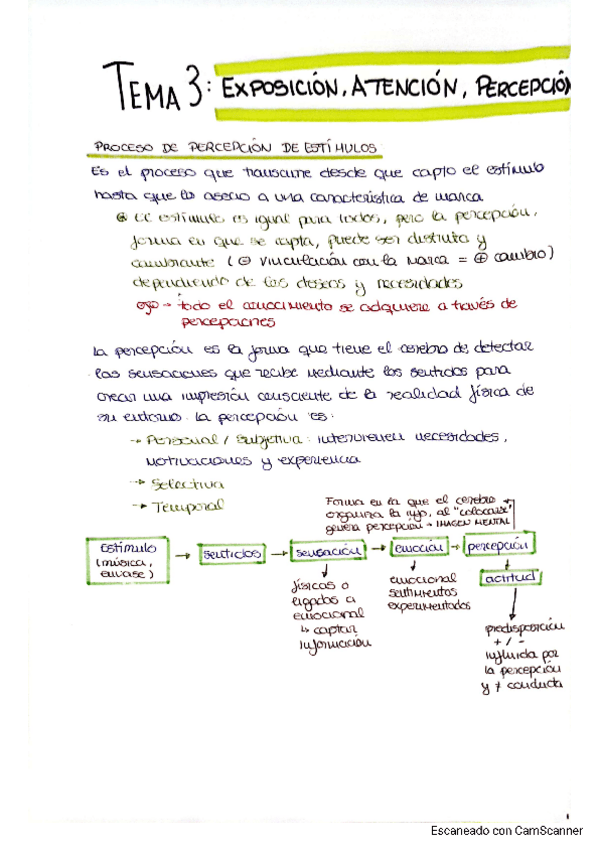 TEMA 3: EXPOSICIÓN, ATENCIÓN, PERCEPCIÓN
PROCESO DE PERCEPCIÓN DE ESTÍMULOS
Es el proceso que transcurre desde que capto el estímulo
hasta que lo asocio a una característica de marca
El estímulo es igual para todos, pero la percepción,
forma en que se capta, puede ser distinta y
cambiante (⊖ vinculación con la marca = ⊕ cambio)
dependiendo de los deseos y necesidades
ojo → todo el conocimiento se adquiere a través de
percepciones
La percepción es la forma que tiene el cerebro de detectar
las sensaciones que recibe mediante los sentidos para
crear una impresión consciente de la realidad física de
su entorno. La percepción es:
→ Personal / subjetiva: intervienen necesidades,
motivaciones y experiencia
→ Selectiva
→ Temporal
Forma en la que el cerebro
organiza la info, al "colocarse"
genera percepción → IMAGEN MENTAL
Estímulo
(música,
envase)
→ sentidos → sensación → emoción → percepción
físicos o
ligados a
emocional
↳ captar
información
emocional
sentimientos
experimentados
actitud
predisposición
+ / -
influida por
la percepción
y ≠ conducta
Escaneado con CamScanner